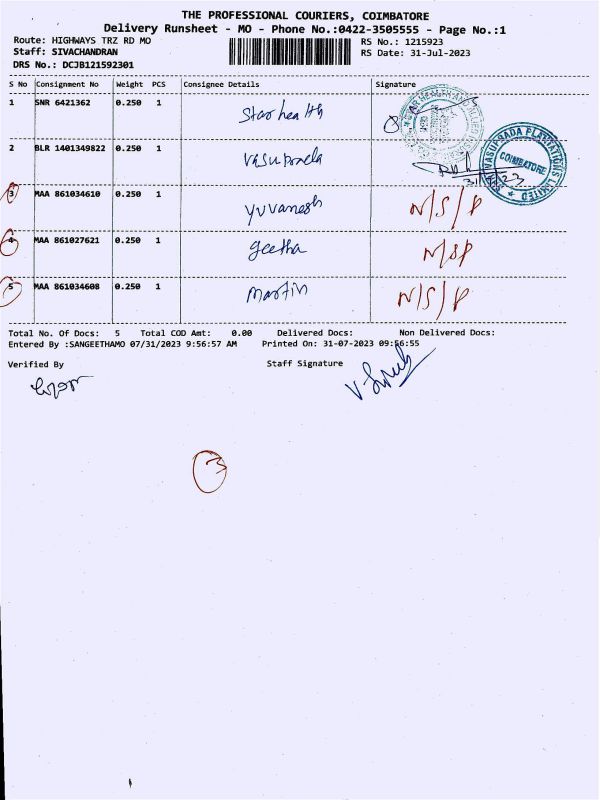 THE PROFESSIONAL COURIERS, COIMBATORE
Delivery Runsheet - MO - Phone No.:0422-3505555 - Page No.:1
Route: HIGHWAYS TRZ RD MO
RS No.: 1215923
Staff: SIVACHANDRAN
RS Date: 31-Jul-2023
DRS No.: DCJB121592301
S No Consignment No Weight PCS Consignee Details Signature
1 SNR 6421362 0.250 1 Star health
2 BLR 1401349822 0.250 1 Vasuprada
COIMBATORE
3 MAA 861034610 0.250 1 yuvanesh N/S/P
4 MAA 861027621 0.250 1 geetha N/SP
5 MAA 861034608 0.250 1 Martin N/S/P
Total No. Of Docs: 5 Total COD Amt: 0.00 Delivered Docs: Non Delivered Docs:
Entered By :SANGEETHAMO 07/31/2023 9:56:57 AM Printed On: 31-07-2023 09:56:55
Verified By Staff Signature
3